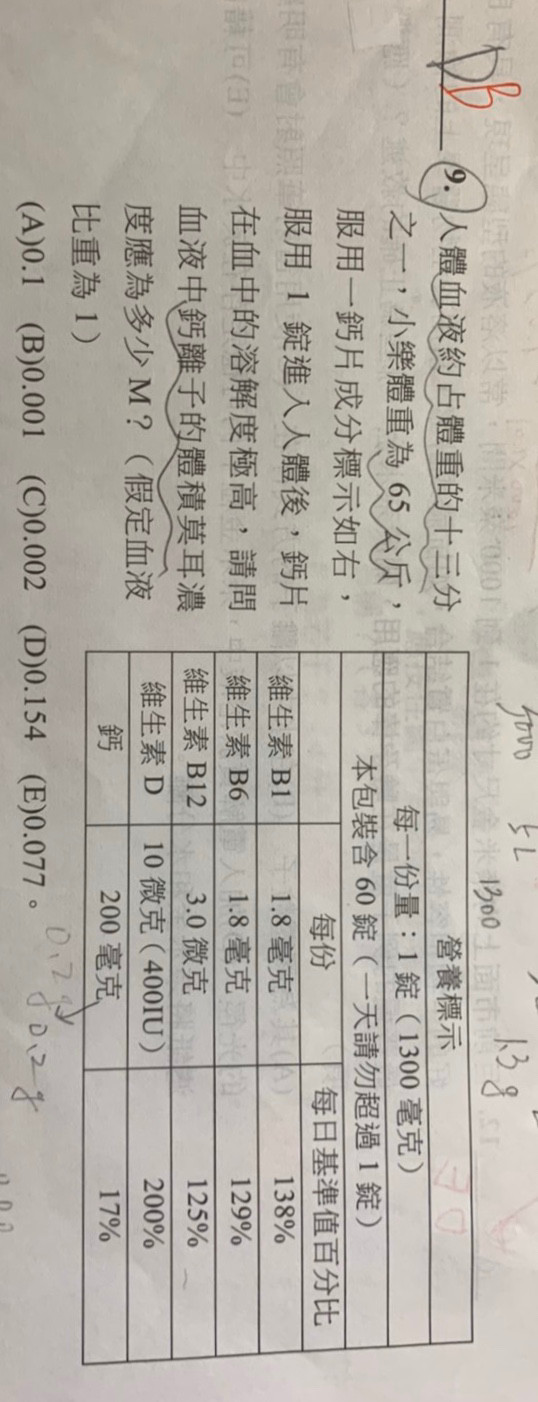 DB
9. 人體血液約占體重的十三分
之一，小樂體重為 65 公斤，
服用一鈣片成分標示如右，
服用 1 錠進入人體後，鈣片
在血中的溶解度極高，請問
血液中鈣離子的體積莫耳濃
度應為多少 M？（假定血液
比重為 1）
(A)0.1 (B)0.001 (C)0.002 (D)0.154 (E)0.077。
營養標示
每一份量：1 錠（1300 毫克）
本包裝含 60 錠（一天請勿超過 1 錠）
每份 每日基準值百分比
維生素 B1 1.8 毫克 138%
維生素 B6 1.8 毫克 129%
維生素 B12 3.0 微克 125%
維生素 D 10 微克（400IU） 200%
鈣 200 毫克 17%
5000 5L 1300 1.3g
0.2g 0.2g